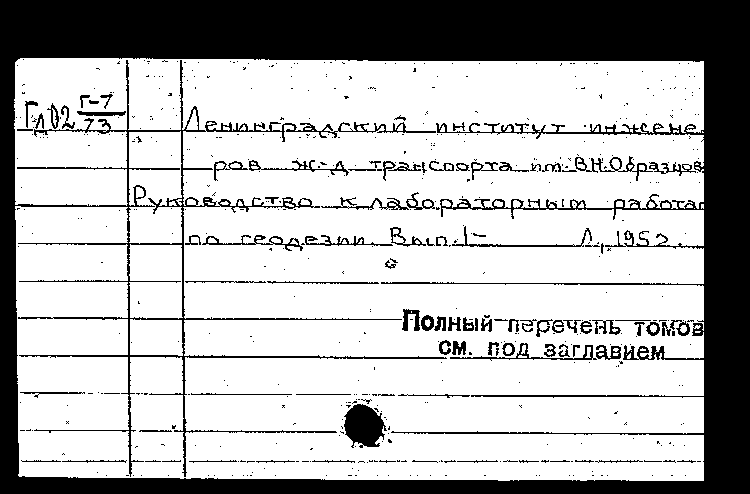 Гд02 Г-7/73
Ленинградский институт инжене
ров ж-д транспорта им. В.Н.Образцов
Руководство к лабораторным работа
по геодезии. Вып.1- Л., 1952.
Полный перечень томов
см. под заглавием